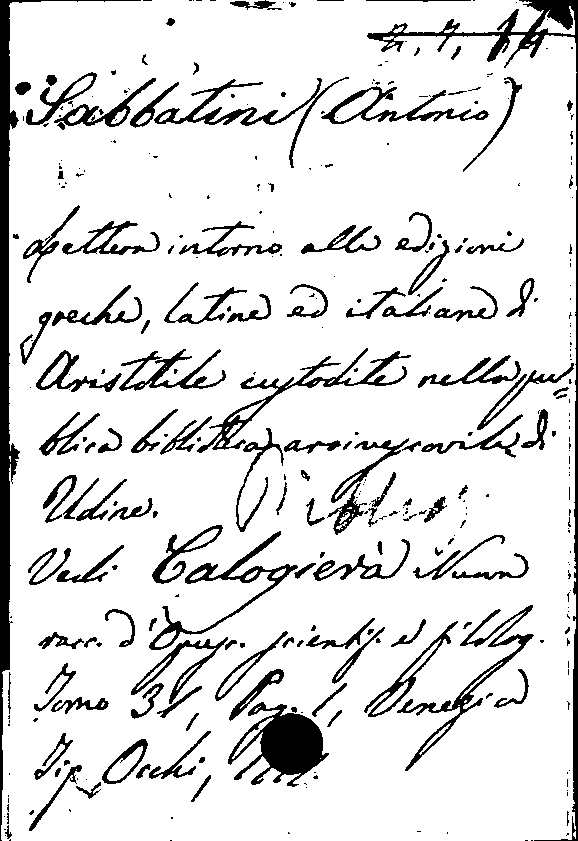 2, 7, 14
Sabbatini (Antonio)
Lettera intorno alle edizioni
greche, latine ed italiane di
Aristotile custodite nella pu=
blica biblioteca arcivescovile di
Udine.
Vedi Calogierà Nuova
racc. d'Opusc. scientif. e filolog.
Tomo 31, Pag. 1, Venezia
Tip Occhi,